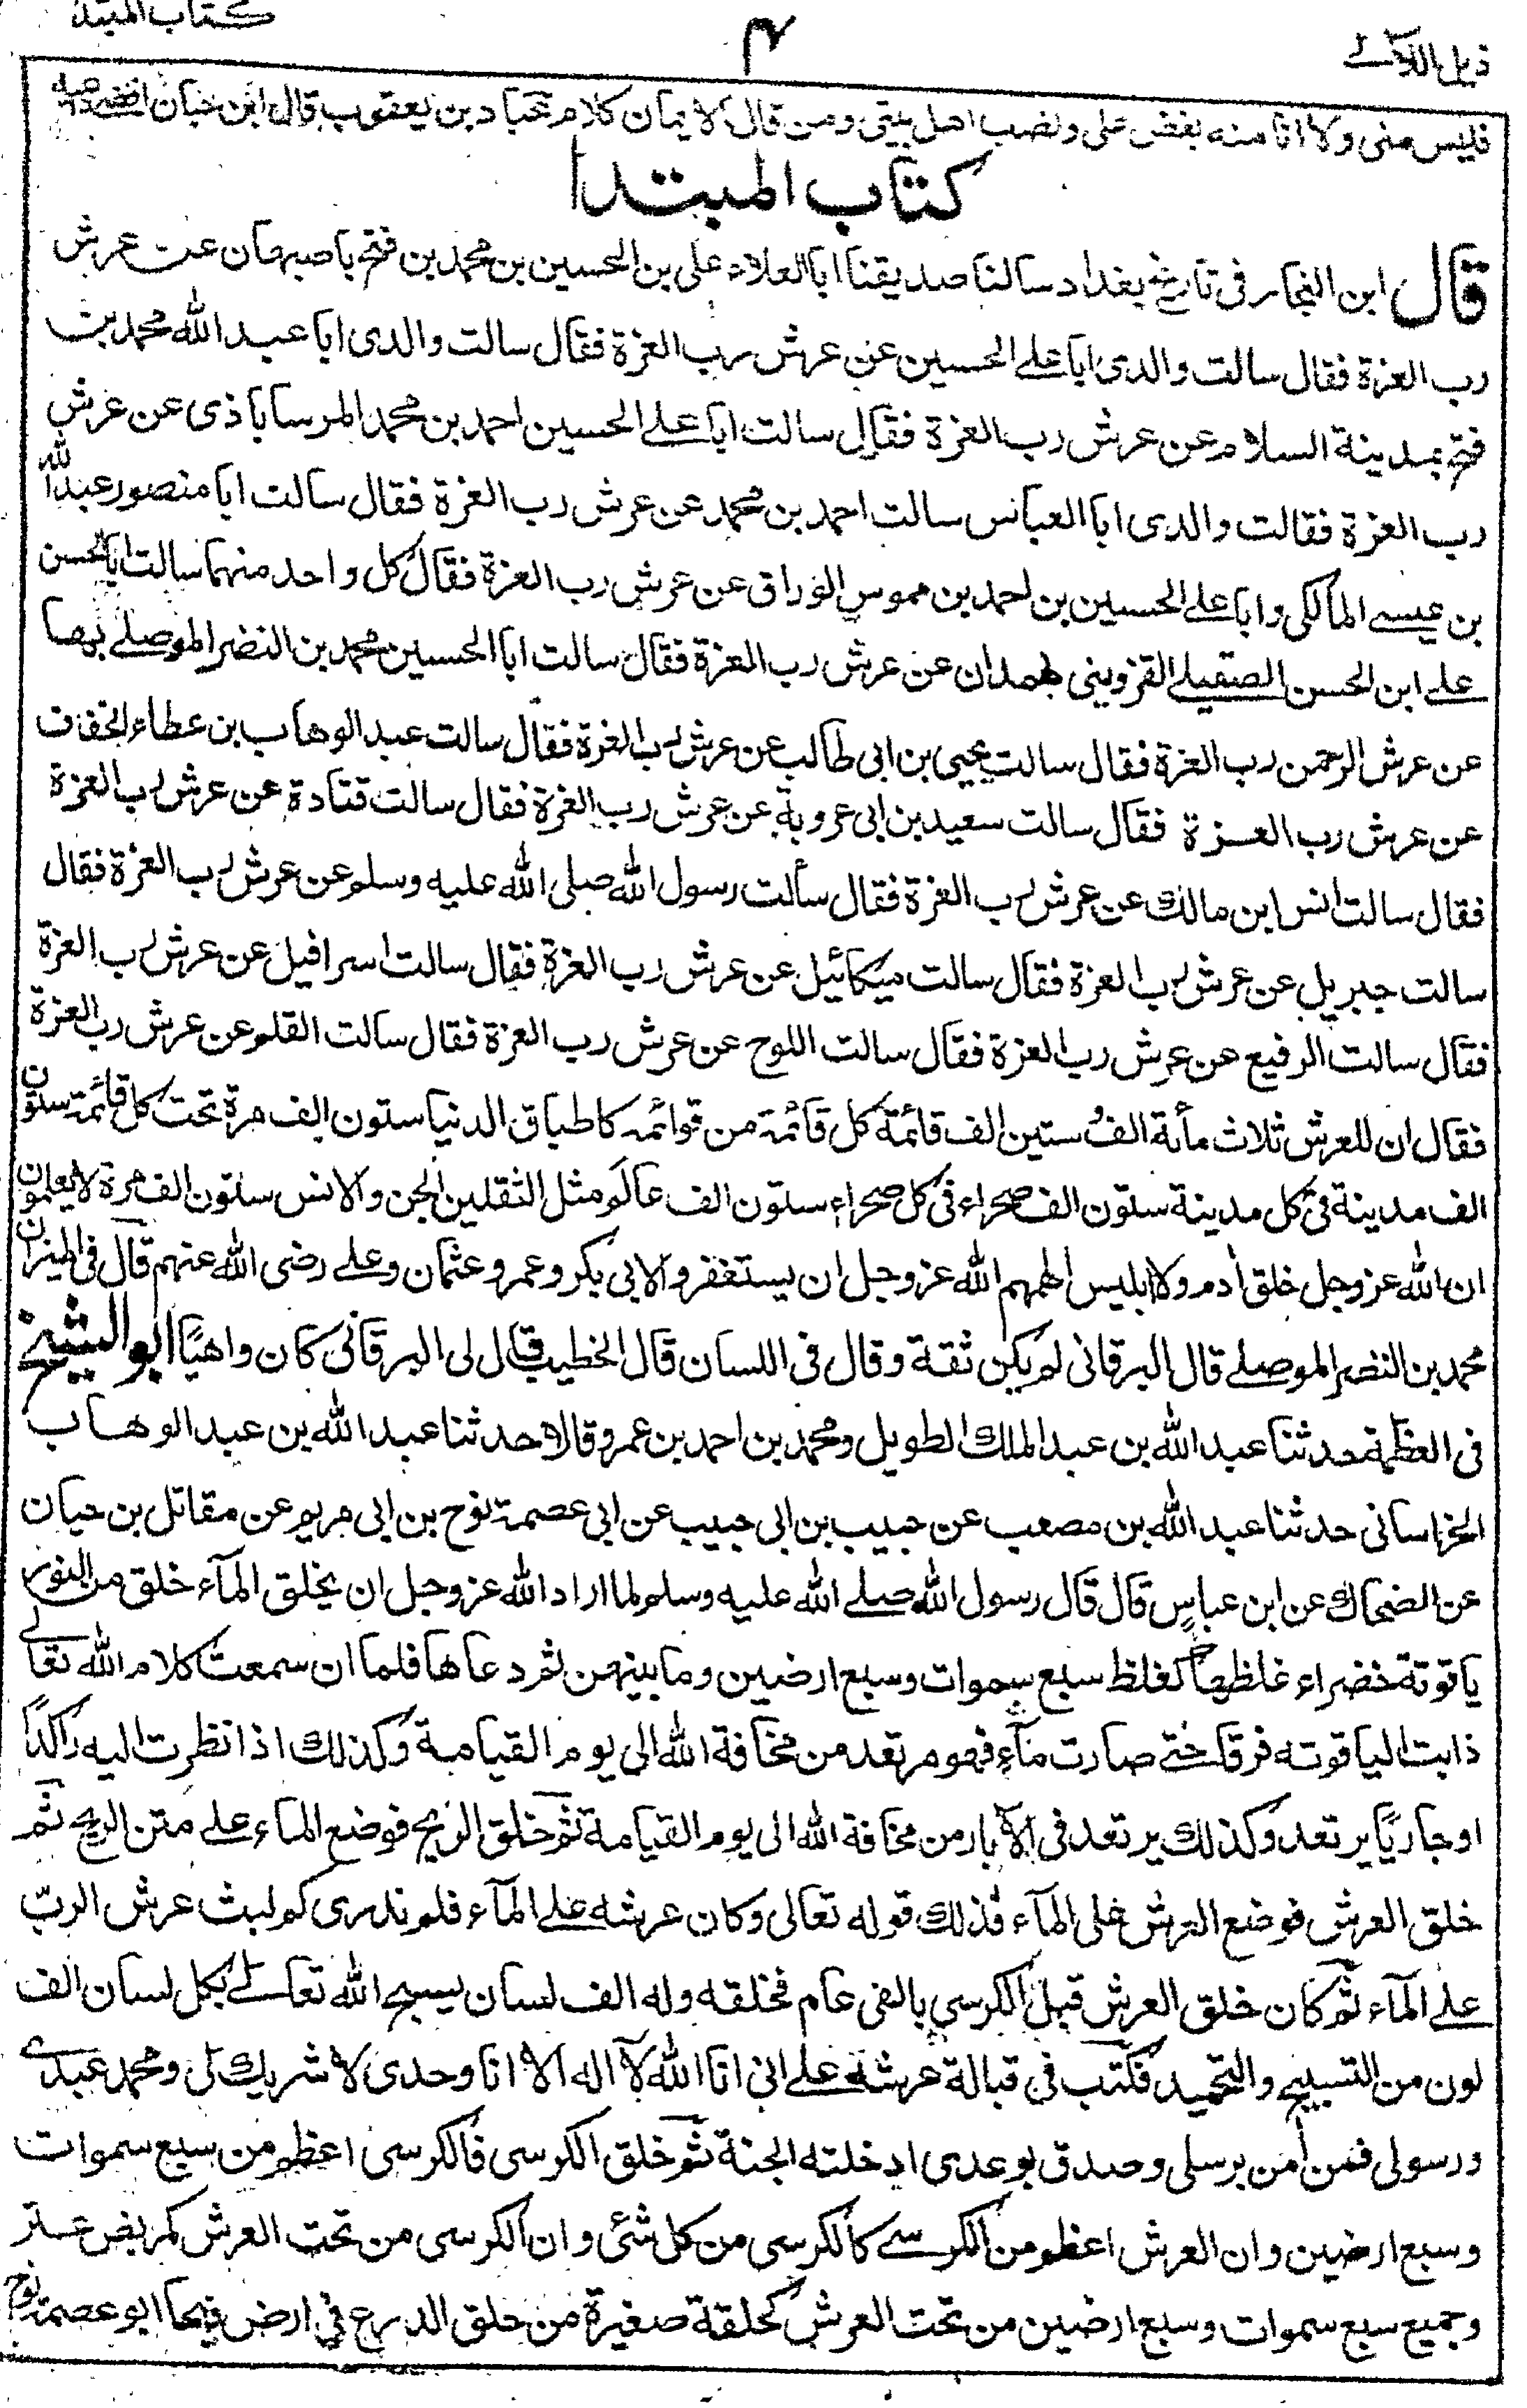 ذيل اللآلى
٤
كتاب المبتدأ
فليس منى ولا انا منه بغض على ونصب اهل بيتى ومن قال الايمان كلام عباد بن يعقوب قال ابن حبان
كتاب المبتدأ
قال ابن النجار فى تاريخ بغداد سالنا صديقنا ابا العلاء على بن الحسين بن محمد بن فتح باصبهان عن عرش
رب العزة فقال سالت والدى ابا على الحسين عن عرش رب العزة فقال سالت والدى ابا عبد الله محمد بن
فتح بمدينة السلام عن عرش رب العزة فقال سالت ابا على الحسين احمد بن محمد المرساباذى عن عرش
رب العزة فقالت والدى ابا العباس سالت احمد بن محمد عن عرش رب العزة فقال سالت ابا منصور عبد الله
بن عيسى المالكى وابا على الحسين بن احمد بن مموس الوراق عن عرش رب العزة فقال كل واحد منهما سالت ابا الحسن
على ابن الحسن الصقيلى القزوينى بهمدان عن عرش رب العزة فقال سالت ابا الحسين محمد بن النضر الموصلى بها
عن عرش الرحمن رب العزة فقال سالت يحيى بن ابى طالب عن عرش رب العزة فقال سالت عبد الوهاب بن عطاء الخفاف
عن عرش رب العزة فقال سالت سعيد بن ابى عروبة عن عرش رب العزة فقال سالت قتادة عن عرش رب العزة
فقال سالت انس ابن مالك عن عرش رب العزة فقال سألت رسول الله صلى الله عليه وسلم عن عرش رب العزة فقال
سالت جبريل عن عرش رب العزة فقال سالت ميكائيل عن عرش رب العزة فقال سالت اسرافيل عن عرش رب العزة
فقال سالت الرفيع عن عرش رب العزة فقال سالت اللوح عن عرش رب العزة فقال سالت القلم عن عرش رب العزة
فقال ان للعرش ثلاث مأة الف وستين الف قائمة كل قائمة من قوائمه كاطباق الدنيا ستون الف مرة تحت كل قائمة ستون
الف مدينة فى كل مدينة ستون الف صحراء فى كل صحراء ستون الف عالم مثل الثقلين الجن والانس ستون الف مرة لا يعلمون
ان الله عز وجل خلق أدم ولا ابليس الهمهم الله عز وجل ان يستغفروا لابى بكر وعمر وعثمان وعلى رضى الله عنهم قال فى الميزان
محمد بن النضر الموصلى قال البرقانى لم يكن ثقة وقال فى اللسان قال الخطيب قال لى البرقانى كان واهيًا ابو الشيخ
فى العظمة حدثنا عبد الله بن عبد الملك الطويل ومحمد بن احمد بن عمرو قالا حدثنا عبد الله بن عبد الوهاب
الخراسانى حدثنا عبد الله بن مصعب عن حبيب بن ابى حبيب عن ابى عصمة نوح بن ابى مريم عن مقاتل بن حيان
عن الضحاك عن ابن عباس قال قال رسول الله صلى الله عليه وسلم لما اراد الله عز وجل ان يخلق المآء خلق من النور
ياقوتة خضراء غلظها كغلظ سبع سموات وسبع ارضين وما بينهن ثم دعاها فلما ان سمعت كلام الله تعالى
ذابت الياقوته فرقا حتى صارت مآء فهو مرتعد من مخافة الله الى يوم القيامة وكذلك اذا نظرت اليه راكدًا
او جاريًا يرتعد وكذلك يرتعد فى الآبار من مخافة الله الى يوم القيامة ثم خلق الريح فوضع الماء على متن الريح ثم
خلق العرش فوضع العرش على المآء فذلك قوله تعالى وكان عرشه على المآء فلم ندرى كم لبث عرش الربّ
على المآء ثم كان خلق العرش قبل الكرسي بالفى عام فخلقه وله الف لسان يسبح الله تعالى بكل لسان الف
لون من التسبيح والتحميد فكتب في قبالة عرشه على انى انا الله لآ اله الا انا وحدى لا شريك لى ومحمد عبدى
ورسولى فمن أمن برسلى وصدق بوعدى ادخلته الجنة ثم خلق الكرسى فالكرسى اعظم من سبع سموات
وسبع ارضين وان العرش اعظم من الكرسى كالكرسى من كل شئى وان الكرسى من تحت العرش كمربض عنز
وجميع سبع سموات وسبع ارضين من تحت العرش كحلقة صغيرة من حلق الدرع في ارض فيحا ابو عصمة نوح